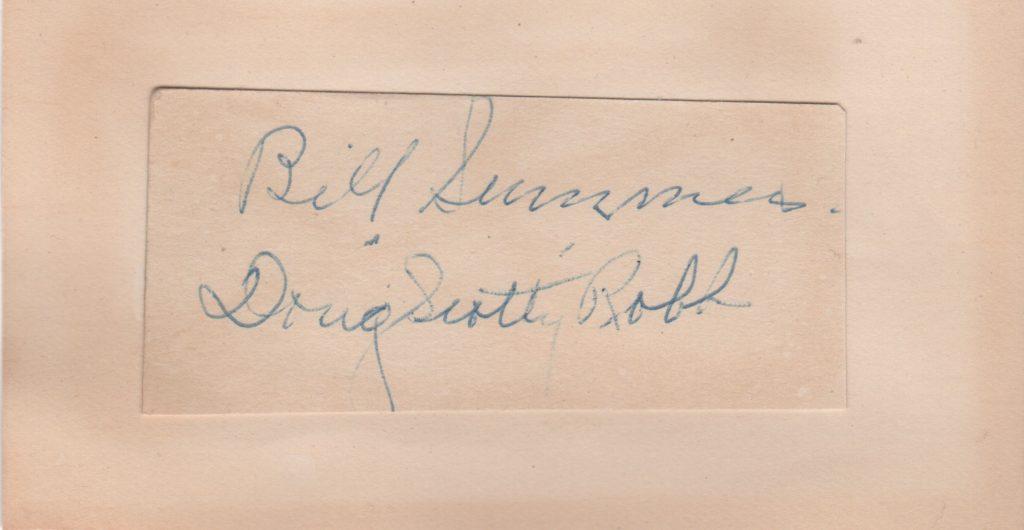 Bill Summers.
Doug "Scotty" Robb